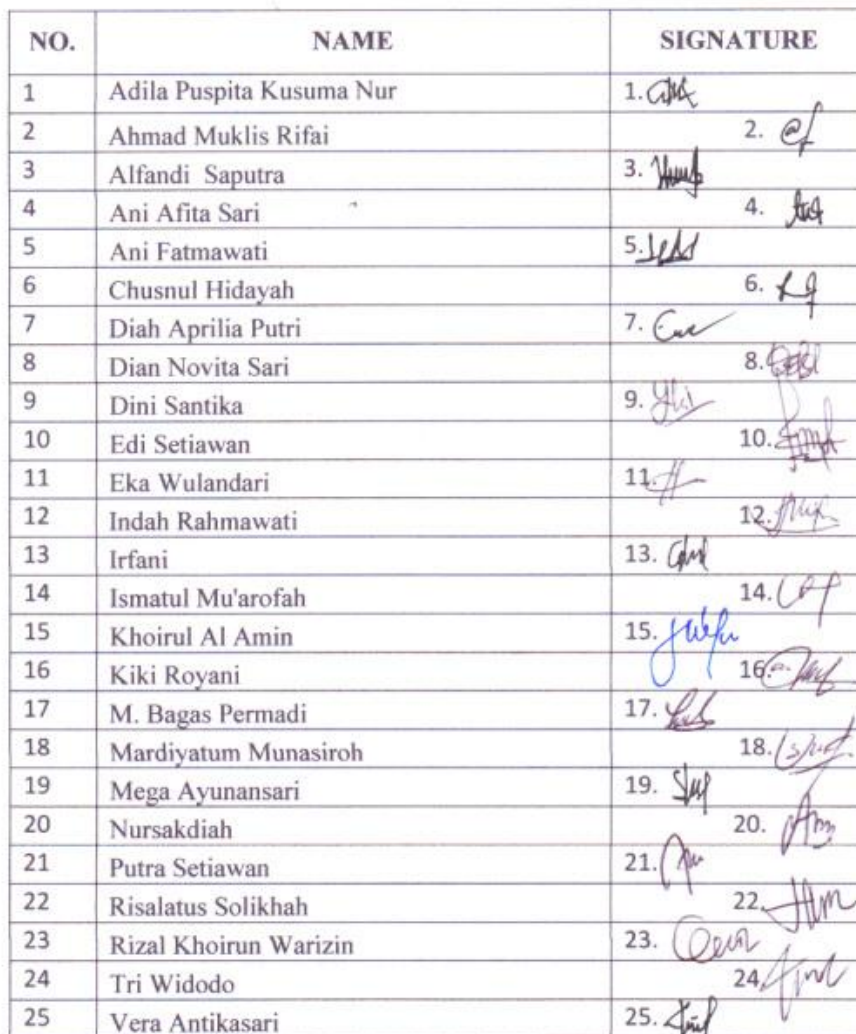 NO. NAME SIGNATURE
1 Adila Puspita Kusuma Nur 1.
2 Ahmad Muklis Rifai 2.
3 Alfandi Saputra 3.
4 Ani Afita Sari 4.
5 Ani Fatmawati 5.
6 Chusnul Hidayah 6.
7 Diah Aprilia Putri 7.
8 Dian Novita Sari 8.
9 Dini Santika 9.
10 Edi Setiawan 10.
11 Eka Wulandari 11.
12 Indah Rahmawati 12.
13 Irfani 13.
14 Ismatul Mu'arofah 14.
15 Khoirul Al Amin 15.
16 Kiki Royani 16.
17 M. Bagas Permadi 17.
18 Mardiyatum Munasiroh 18.
19 Mega Ayunansari 19.
20 Nursakdiah 20.
21 Putra Setiawan 21.
22 Risalatus Solikhah 22.
23 Rizal Khoirun Warizin 23.
24 Tri Widodo 24.
25 Vera Antikasari 25.